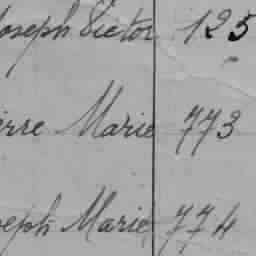 Joseph Victor 125
ierre Marie 773
seph Marie 774